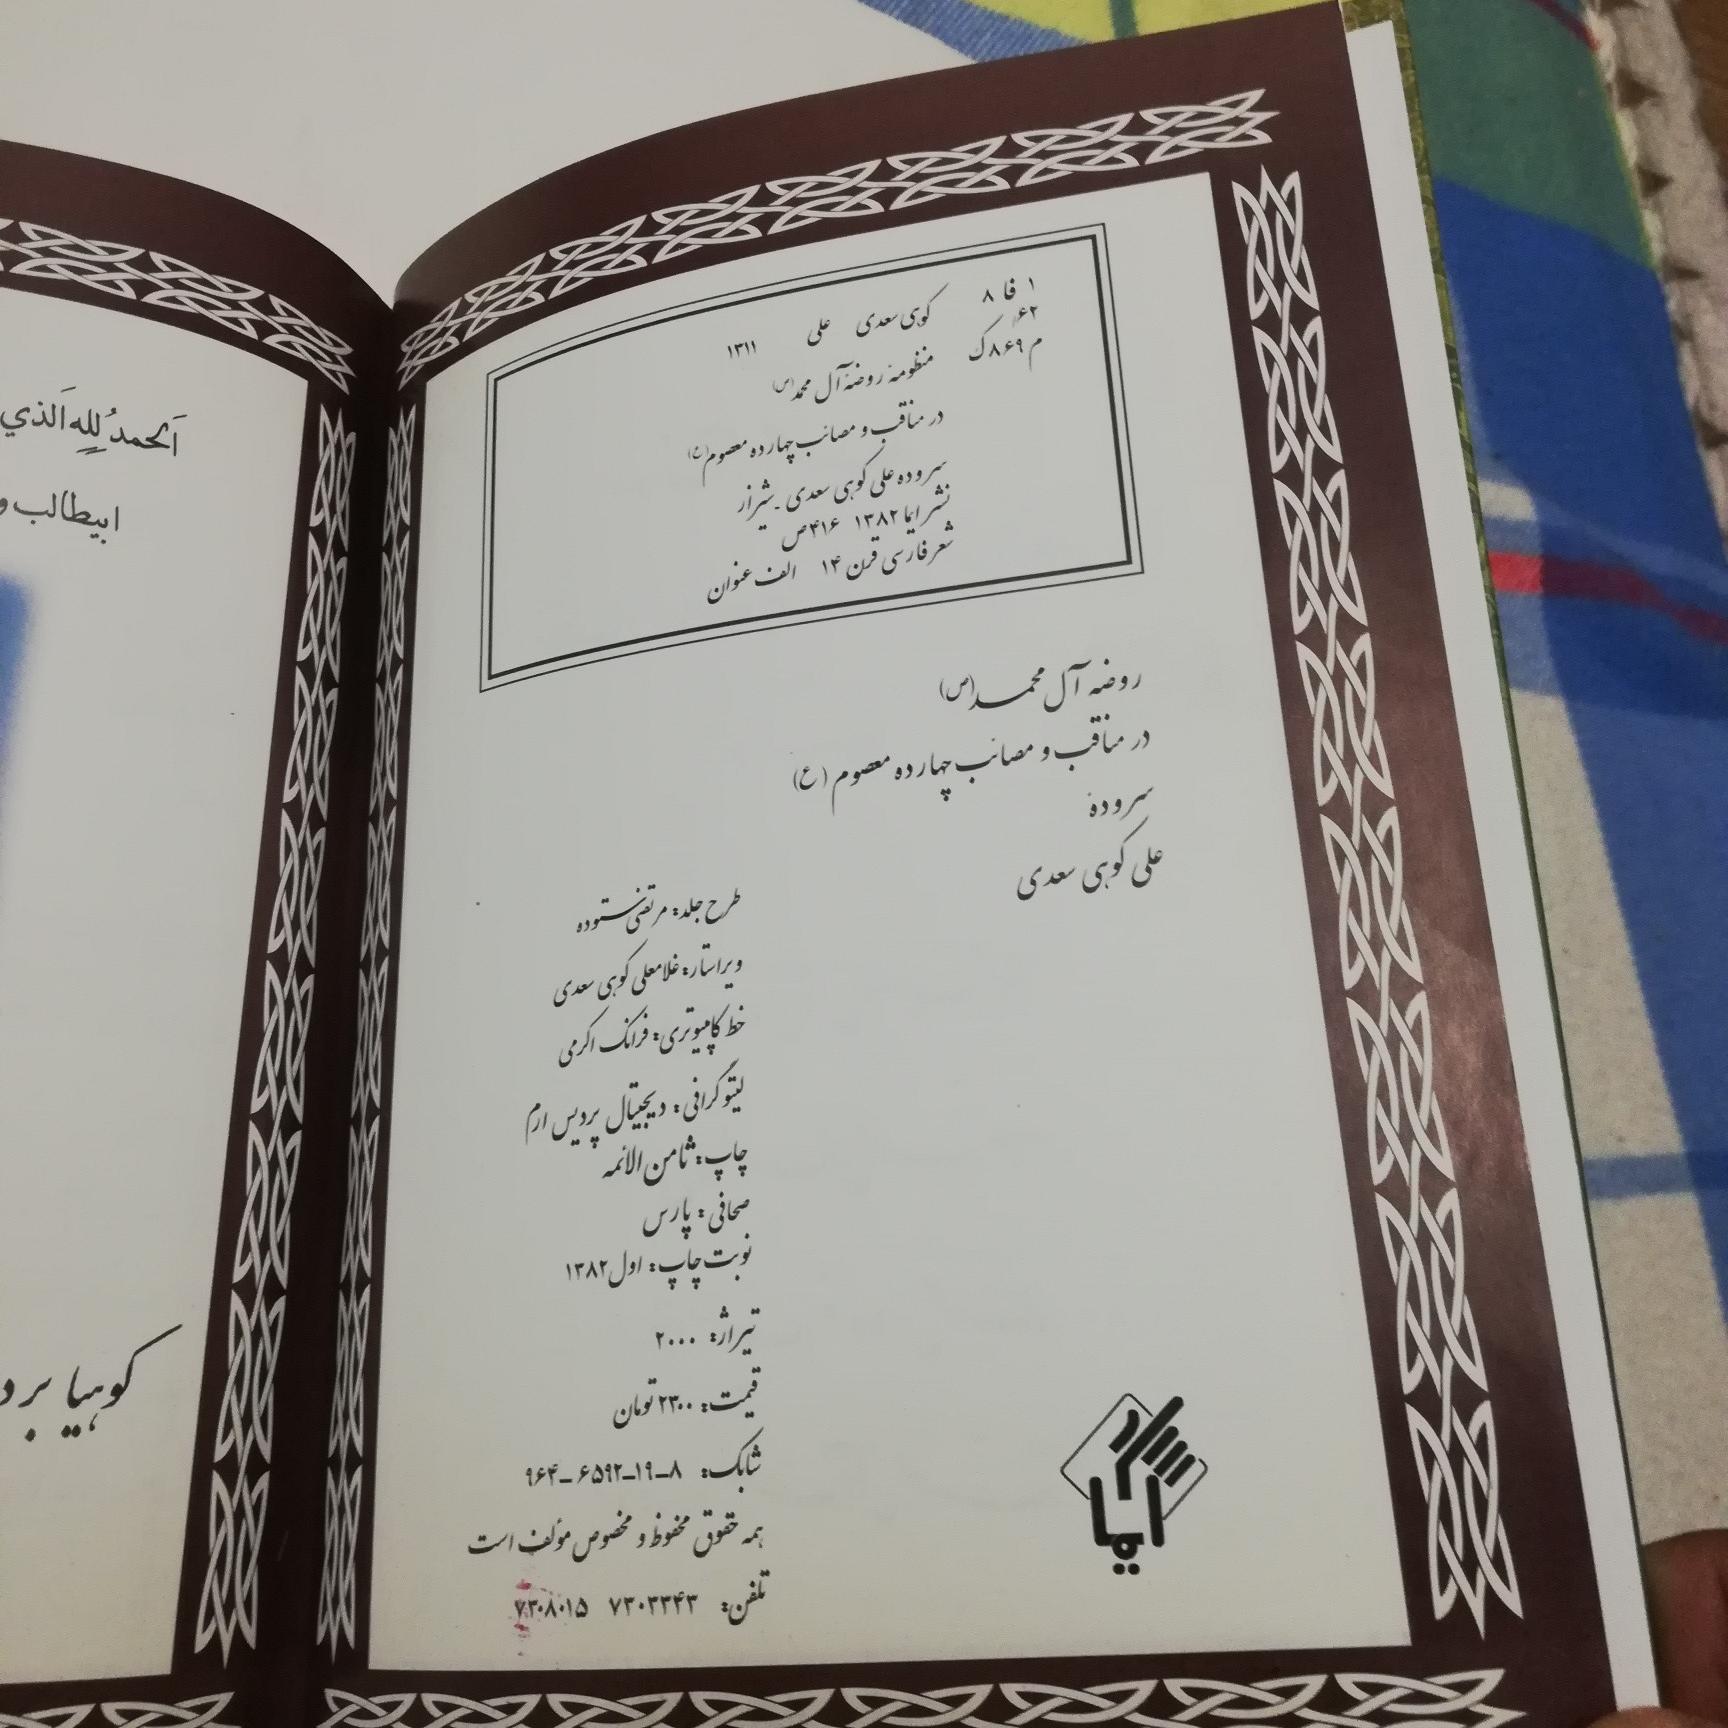 ۱ فا ۸
۶۲/
م ۸۶۹ک
کوهی سعدی علی ۱۳۱۱
منظومه روضهٔ آل محمد(ص)
در مناقب و مصائب چهارده معصوم(ع)
سروده علی کوهی سعدی ـ شیراز
نشر ایما ۱۳۸۲ ۴۱۶ص
شعر فارسی قرن ۱۴ الف عنوان
روضه آل محمد(ص)
در مناقب و مصائب چهارده معصوم (ع)
سروده
علی کوهی سعدی
طرح جلد: مرتضی ستوده
ویراستار: غلامعلی کوهی سعدی
خط کامپیوتری: فرانک اکرمی
لیتوگرافی: دیجیتال پردیس ارم
چاپ: ثامن الائمه
صحافی: پارس
نوبت چاپ: اول ۱۳۸۲
تیراژ: ۲۰۰۰
قیمت: ۲۳۰۰ تومان
شابک: ۸-۱۹-۶۵۹۲-۹۶۴
همه حقوق محفوظ و مخصوص مؤلف است
تلفن: ۷۳۰۳۳۴۳ ۷۳۰۸۰۱۵
ایما
اَلحمدُ لِلّهِ اَلذي
ابیطالب و
کوهیا بر د